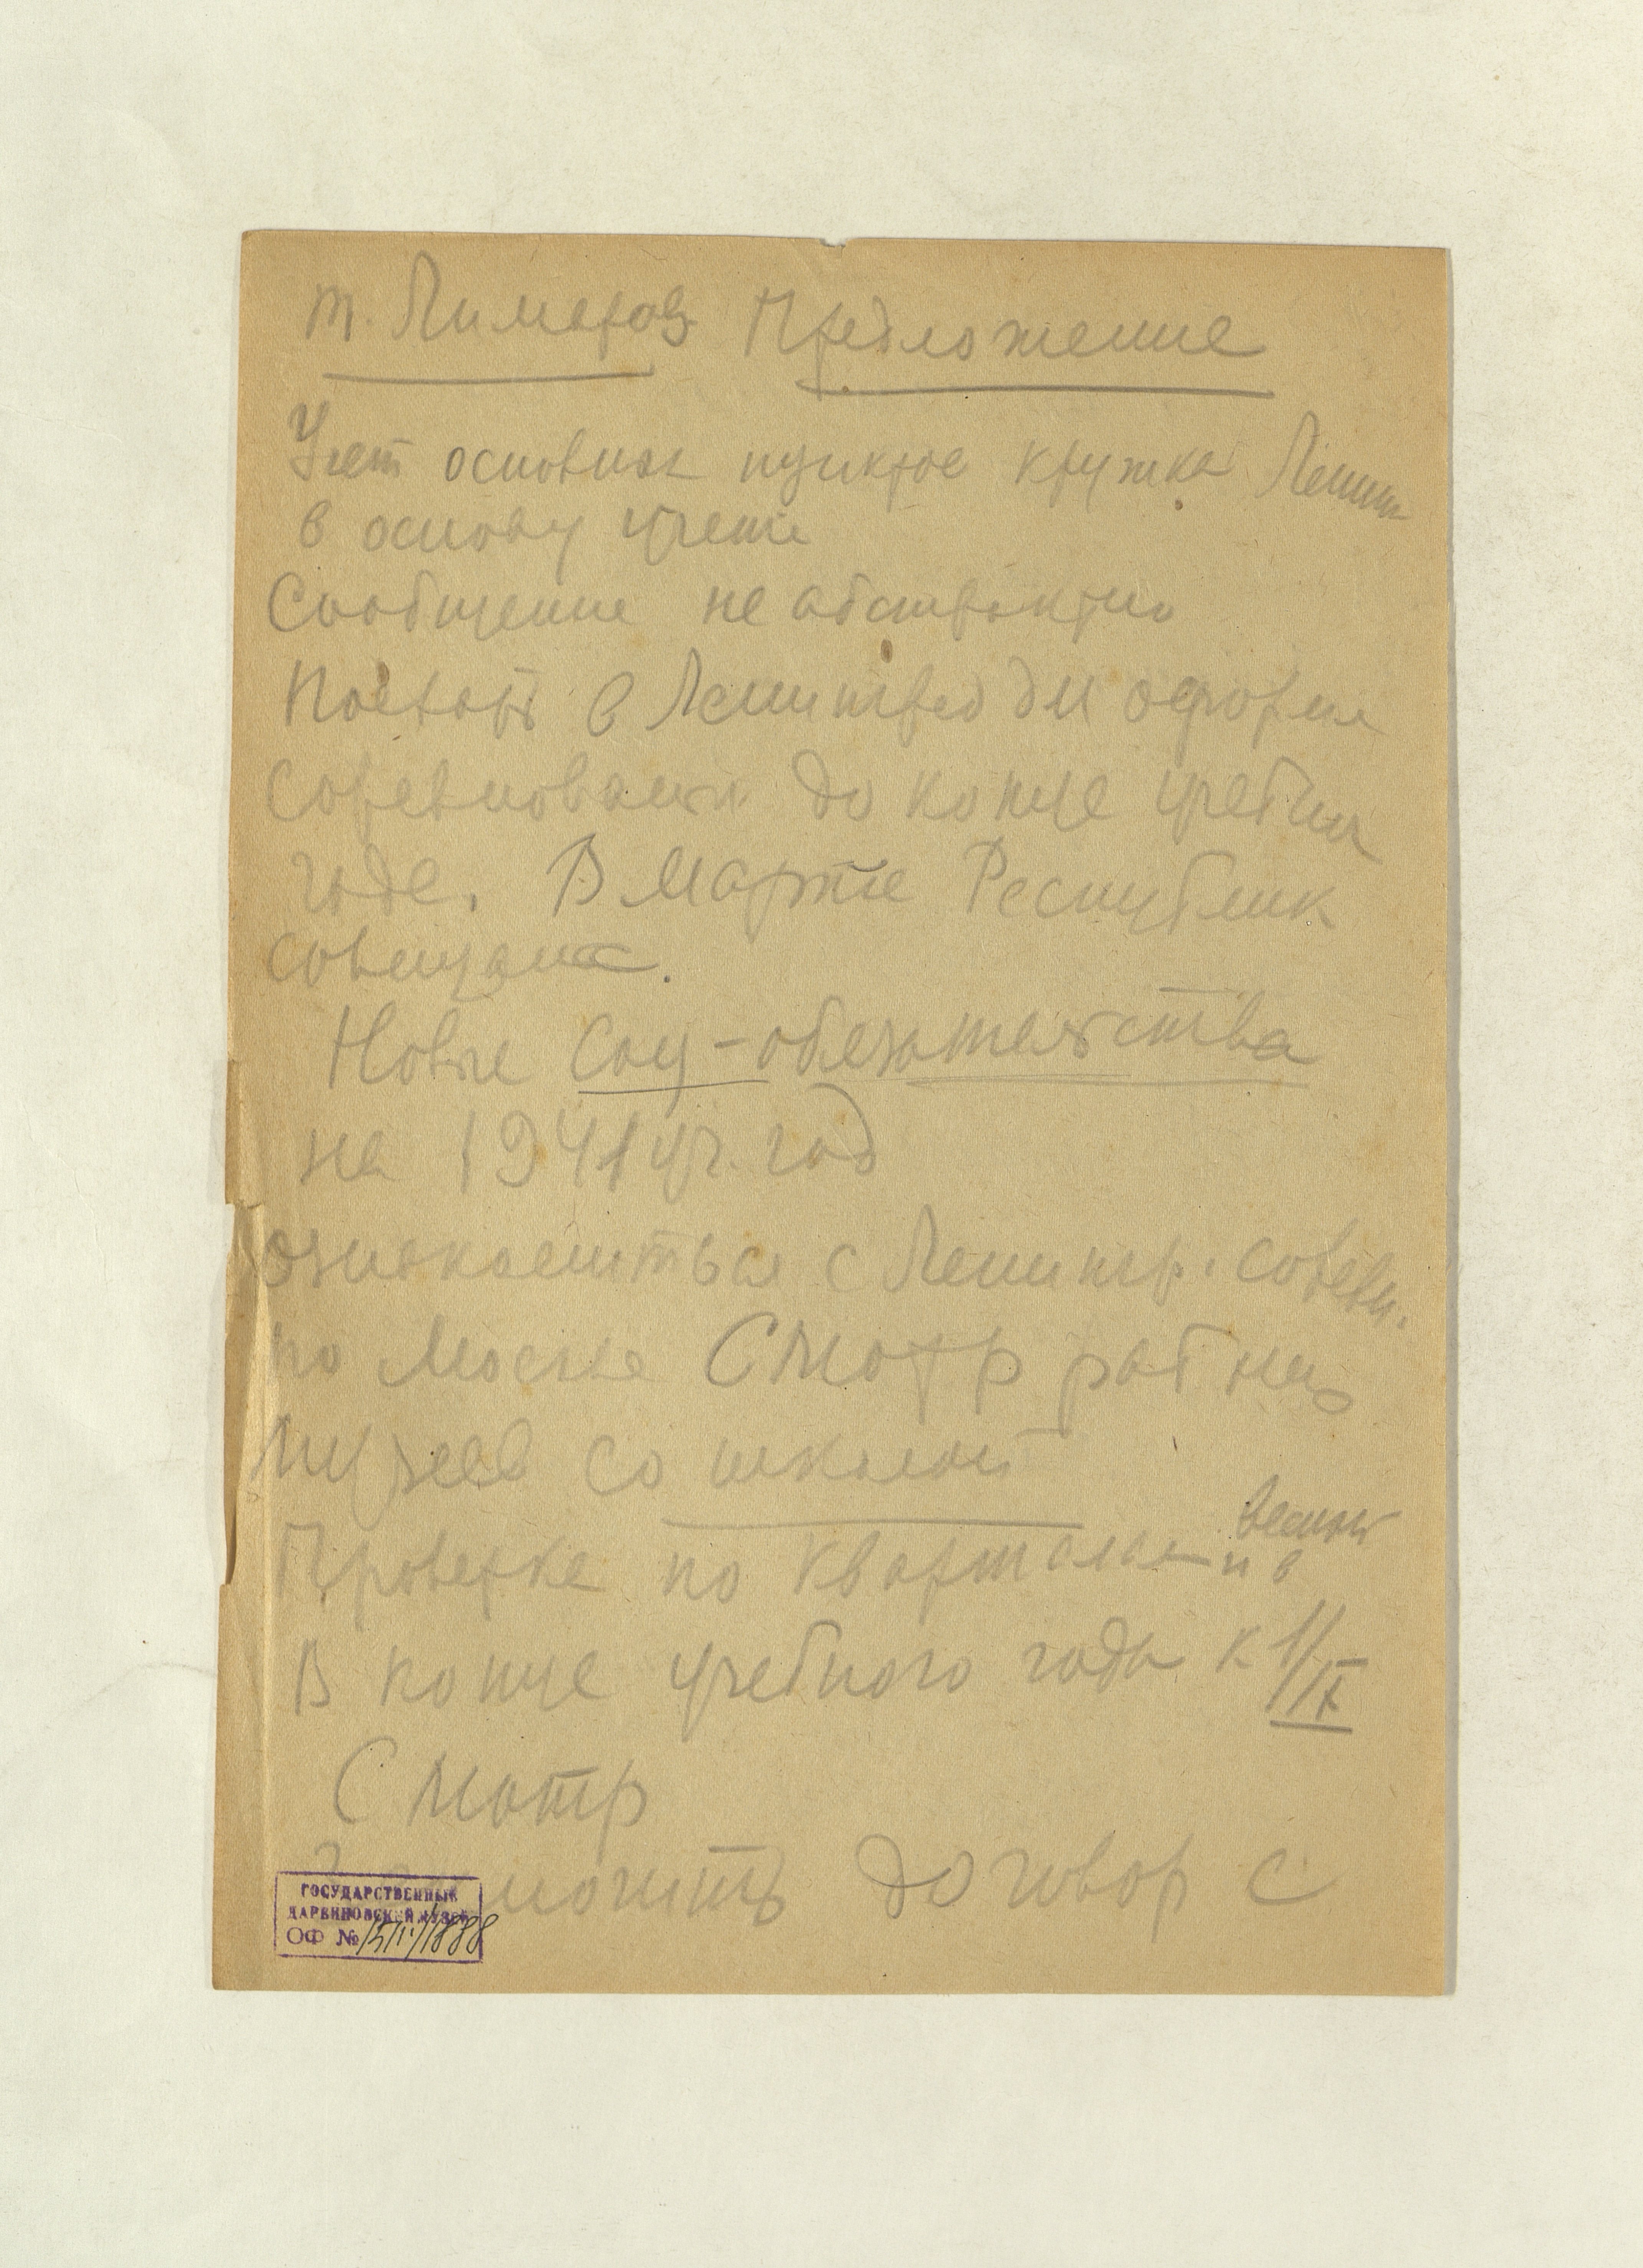 т. Лимаров Предложение
Учет основных пунктов кружка Ленингр
в основу учета
Сообщение не абстрактно
Поехать в Ленинград для оформл
соревнования до конца учебн
года. В Марте Республик
совещание.
Новые соц-обязательства
на 1941 уч. год
ознакомиться с Ленингр. соревн.
по Москве Смотр работы
Музеев со школой
весной
Проверка по кварталам и в
В конце учебного года к 1/IX
Смотр
договор с
ГОСУДАРСТВЕННЫЙ
ДАРВИНОВСКИЙ МУЗЕЙ
ОФ №